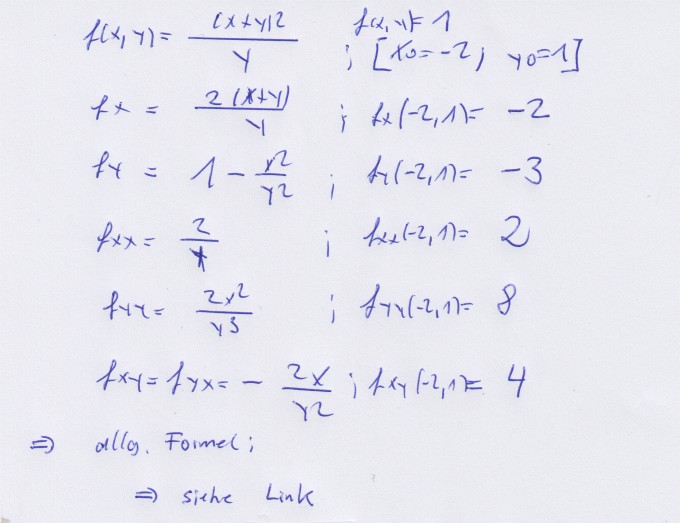 f(x, y) = (x+y)2 / y ; f(x, y) = 1 [x0 = -2; y0 = 1]
fx = 2(x+y) / y ; fx(-2, 1) = -2
fy = 1 - x2 / y2 ; fy(-2, 1) = -3
fxx = 2 / y ; fxx(-2, 1) = 2
fyy = 2x2 / y3 ; fyy(-2, 1) = 8
fxy = fyx = - 2x / y2 ; fxy(-2, 1) = 4
⇒ allg. Formel;
⇒ siehe Link